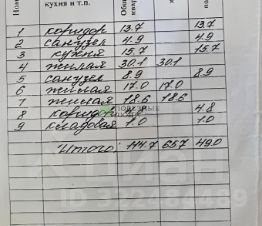 кухня и т.п.
1 коридор 13.7 13.7
2 санузел 4.9 4.9
3 кухня 15.7 15.7
4 жилая 30.1 30.1
5 санузел 8.9 8.9
6 жилая 17.0 17.0
7 жилая 18.6 18.6
8 коридор 4.8
9 кладовая 1.0 1.0
Итого: 114.7 65.7 49.0